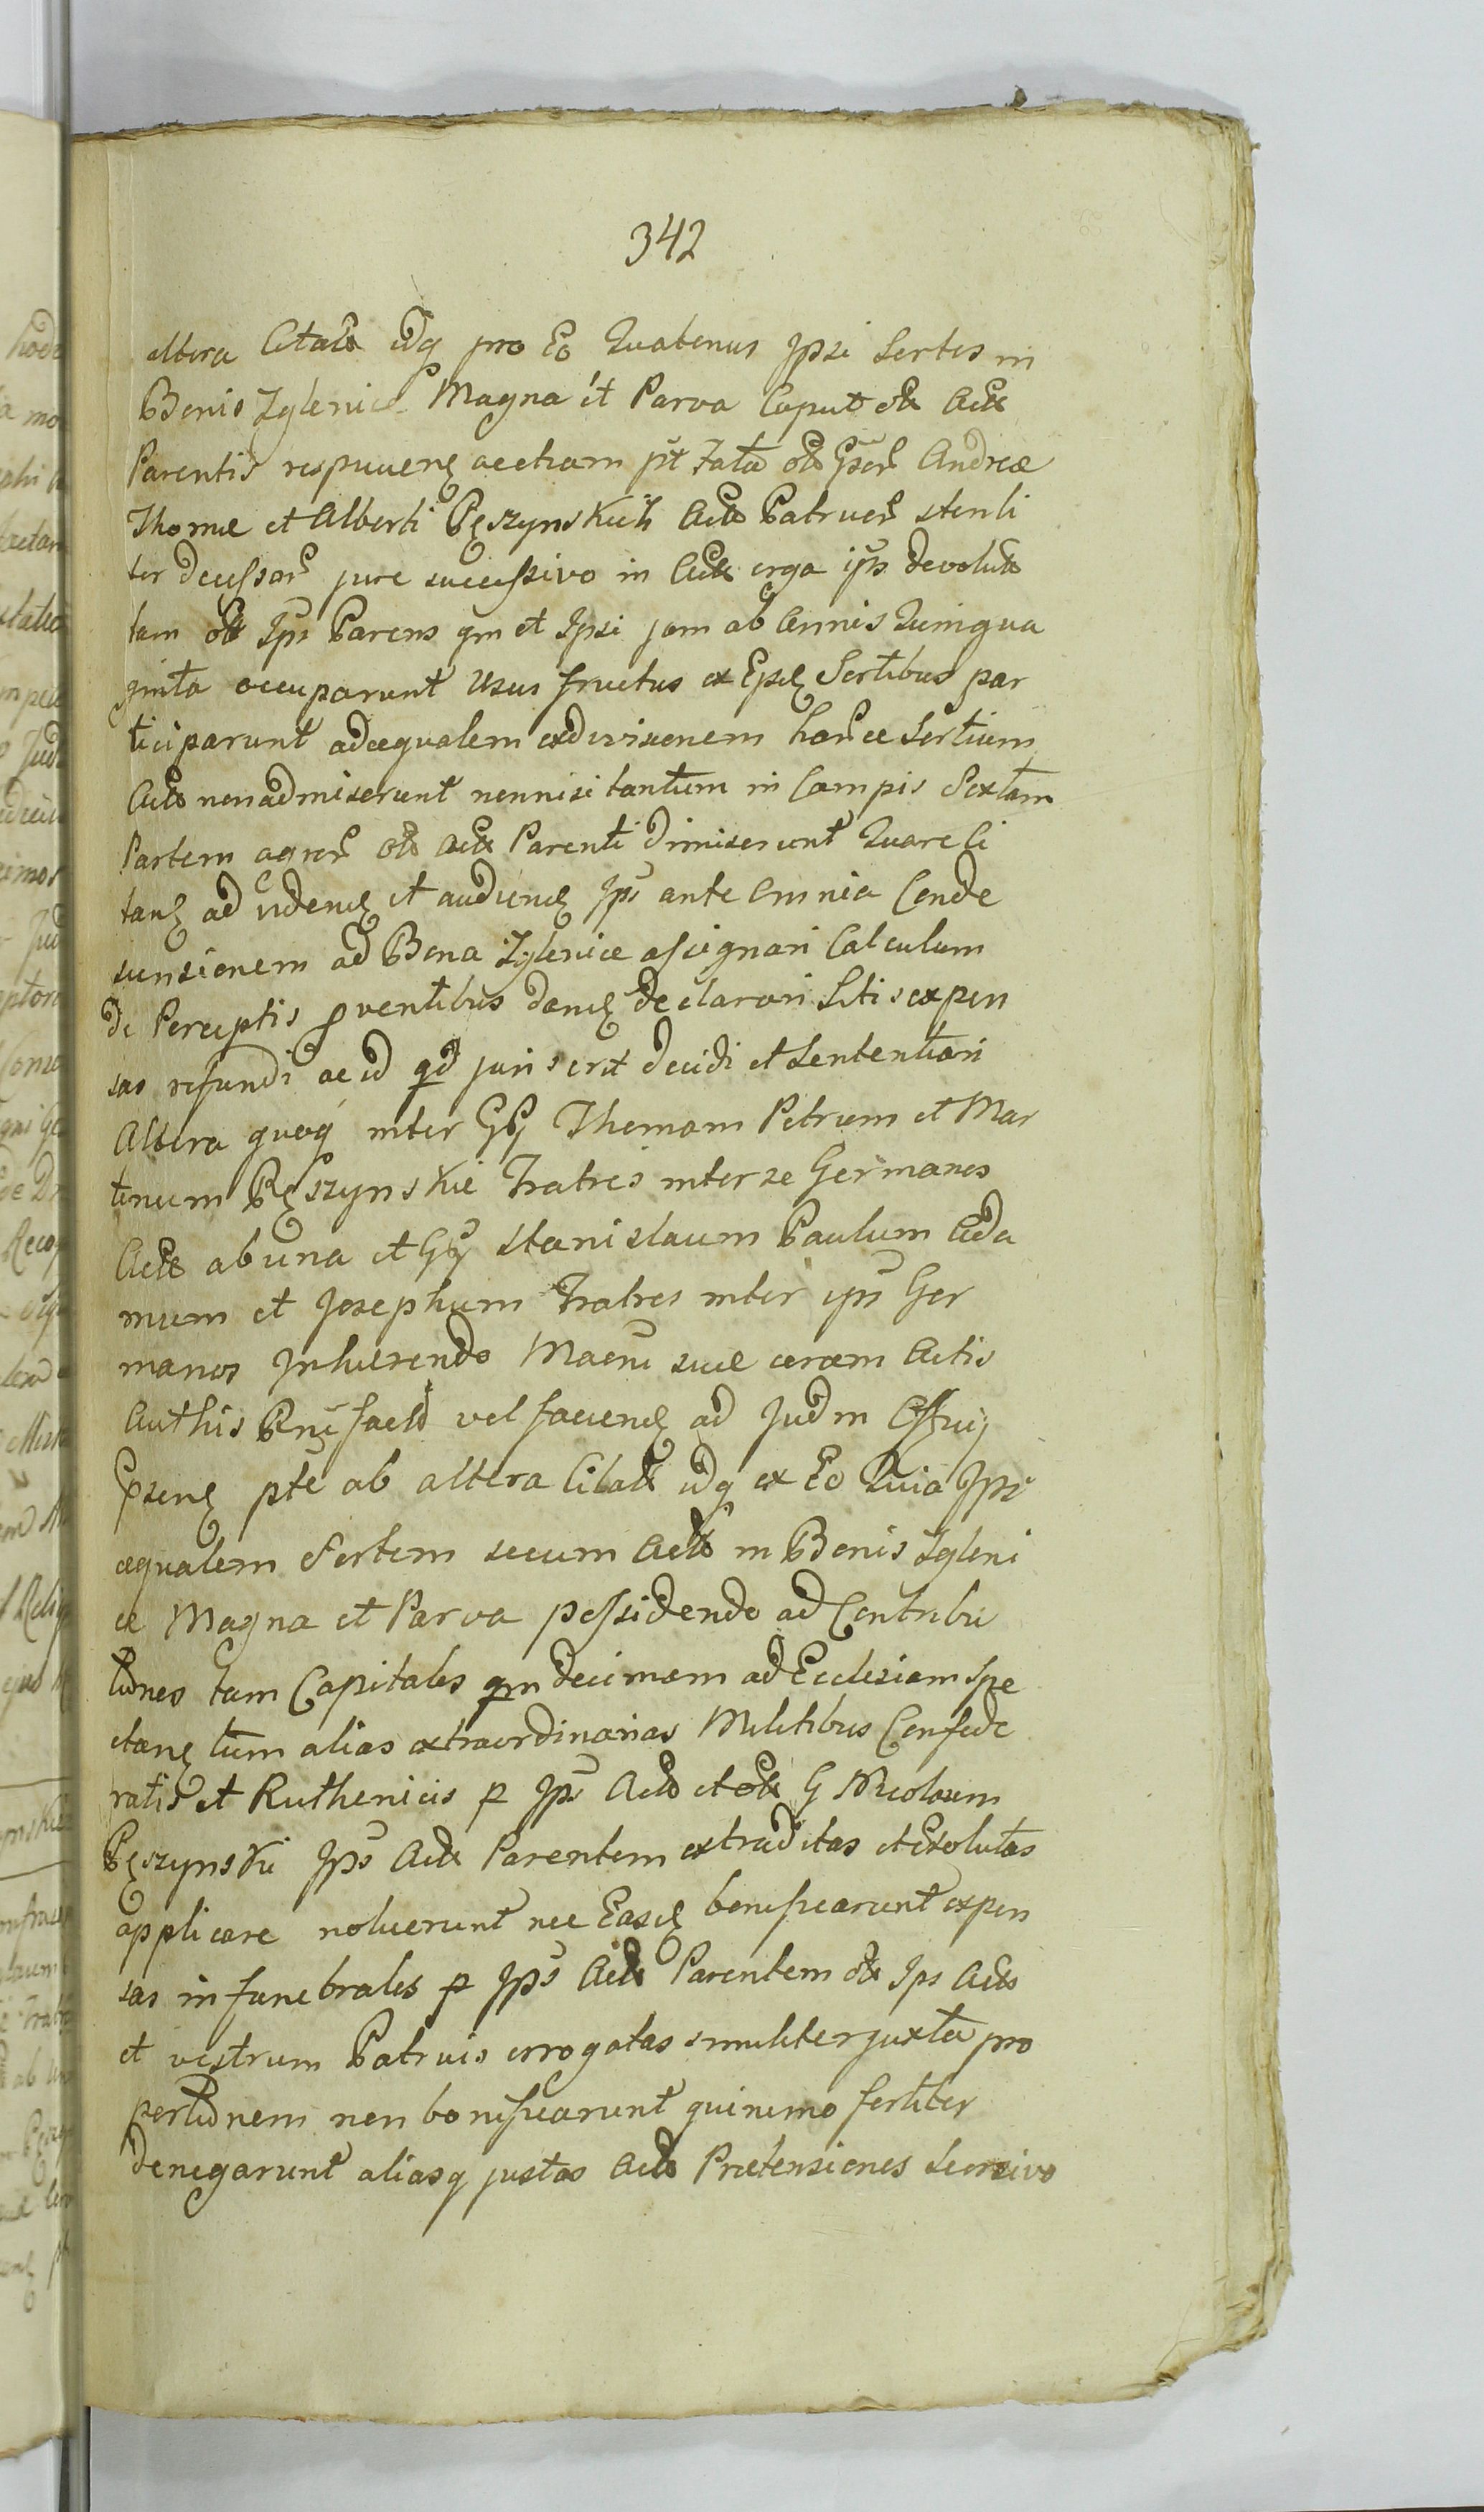 342
altera Citatos idq pro Eo Quatenus Ipsi Sortes in
Bonis Iglenice Magna et Parva Caput olt Act
Parentis respicien ac etiam pt Fata olt Gsor Andreæ
Thomæ et Alberti Pęszynskich Act Patruor sterili
ter decessor jure successivo in Act erga ips devolut
tam olt Ips Parens qm et Ipsi jam ab Annis Quinqua
ginta occuparunt Usus fructus ex Eysd Sortibus par
ticiparunt adæqualem exdivisionem harce Sortium
Act non admiserunt nonnisi tantum in Campis Sextam
Partem agror olt Act Parenti dimiserunt Quare Ci
tan ad viden et audien Ips ante Omnia Conde
scensionem ad Bona Iglenice assignari Calculum
de Perceptis proventibus dand declarari Litis expen
sas refundi ac id qd juris erit decidi et Sententiari
Altera quoq inter GG Thomam Petrum et Mar
tinum Pęszynskie Fratres inter se Germanos
Act ab una et GG Stanislaum Paulum Ada
mum et Josephum Fratres inter ips Ger
manos Inhærendo Maeni suæ coram Actis
Authis Pnt fact vel facien ad Judm
psen pte ab altera Citat idq ex Eo Quia Ipsi
æqualem Sortem secum Act in Bonis Igleni
ce Magna et Parva possidendo ad Contribu
tiones tam Capitales qm decimam ad Ecclesiam Spe
ctan tum alias extraordinarias Militibus Confede
ratis et Ruthenicis p Ips Act et olt G Nicolaum
Pęszynski Ips Act Parentem extraditas et Exolutas
applicare noluerunt nec Easd bonificarunt expen
sas in funebrales p Ips Act Parentem olt Ips Act
et vestrum Patruis errogatas similiter juxta pro
portionem non bonificarunt quinimo fortiter
denegarunt aliasq justas Act Prætensiones Seorsivo